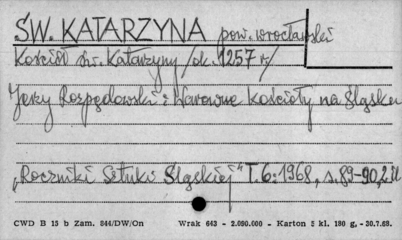 ŚW. KATARZYNA pow. wrocławski
Kościół św. Katarzyny /ok. 1257 r/
Jerzy Rozpędowski: Warowne kościoły na Śląsku
„Roczniki Sztuki Śląskiej" T.6:1968, s.89-90, 2 il
CWD B 15 b Zam. 844/DW/On Wrak 643 - 2.090.000 - Karton 5 kl. 180 g, -30.7.68.